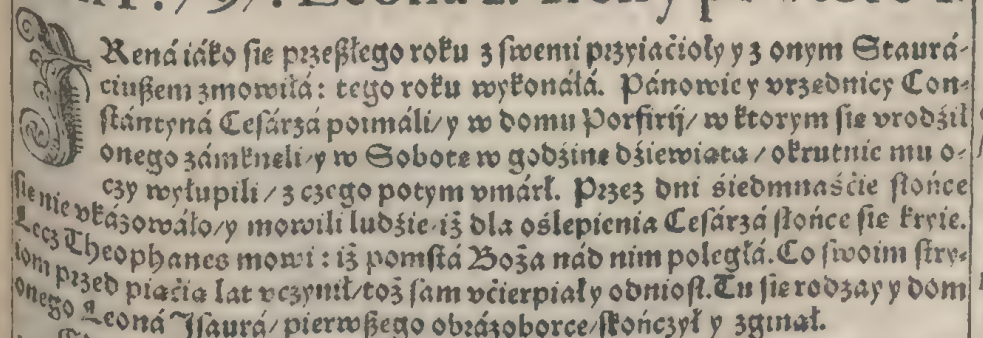 IRená iáko ſie przeßłego roku z ſwemi przyiacioły y z onym Staurá-
ciußem zmowiłá: tego roku wykonáłá. Pánowie y vrzednicy Con-
ſtántyná Ceſárzá poimáli/ y w domu Porfirij/ w ktorym ſie vrodźił
onego zámkneli/ y w Sobote w godźine dźiewiata/ okrutnie mu o-
czy wyłupili/ z czego potym vmárł. Przez dni śiedmnaśćie ſłońce
ſie nie vkázowáło/ y mowili ludźie/ iż dla oślepienia Ceſárzá ſłońce ſie kryie.
Lecz Theophanes mowi: iż pomſtá Boża nád nim poległá. Co ſwoim ſtry-
iom przed piącia lat vczynił/ toż ſam vćierpiał y odnioſł. Tu ſie rodzay y dom
onego Leoná Iſaurá/ pierwßego obrázoborce/ ſkończył y zginał.